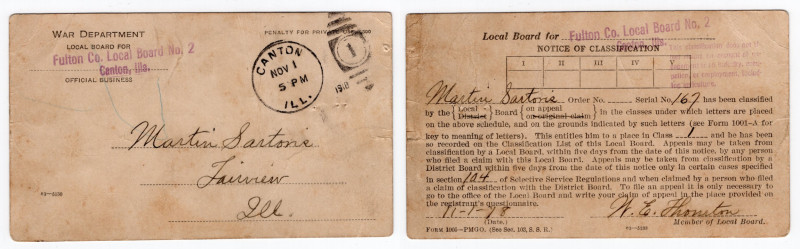 WAR DEPARTMENT
LOCAL BOARD FOR
Fulton Co. Local Board No. 2
Canton, Ills.
OFFICIAL BUSINESS
PENALTY FOR PRIVATE USE $300
CANTON
NOV 1
5 PM
ILL.
1918
1
Martin Sartoris
Fairview
Ill.
Local Board for
Fulton Co. Local Board No. 2
Canton, Ills.
NOTICE OF CLASSIFICATION
I II III IV V
Martin Sartoris Order No. Serial No. 167 has been classified
by the {Local District} Board {on appeal on original claim} in the classes under which letters are placed
on the above schedule, and on the grounds indicated by such letters (see Form 1001-A for
key to meaning of letters). This entitles him to a place in Class 1 and he has been
so recorded on the Classification List of this Local Board. Appeals may be taken from
classification by a Local Board, within five days from the date of this notice, by any person
who filed a claim with this Local Board. Appeals may be taken from classification by a
District Board within five days from the date of this notice only in certain cases specified
in section 104 of Selective Service Regulations and when claimed by a person who filed
a claim of classification with the District Board. To file an appeal it is only necessary to
go to the office of the Local Board and write your claim of appeal in the place provided on
the registrant's questionnaire.
11-1-18
(Date.)
Member of Local Board.
FORM 1005—PMGO. (See Sec. 103, S. S. R.)